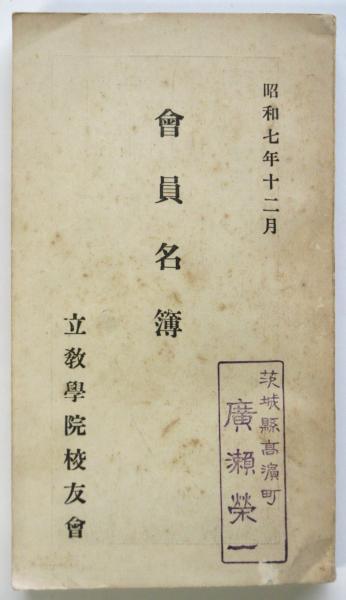 昭和七年十二月
會員名簿
立敎學院校友會
茨城縣高濱町
廣瀨榮一